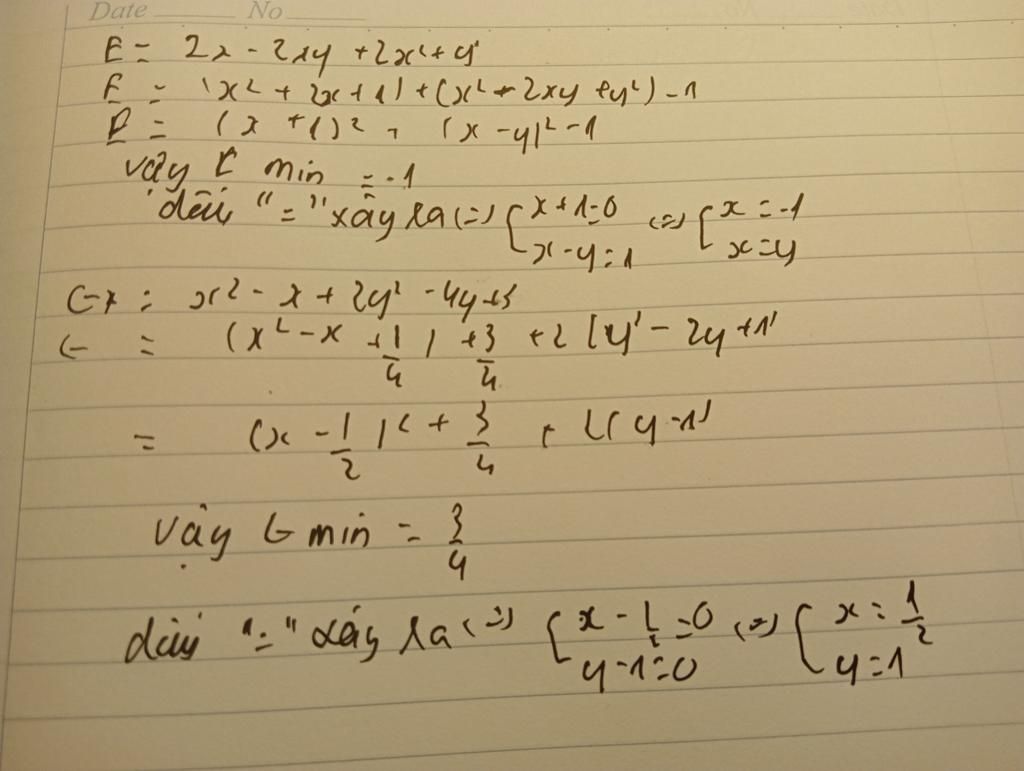 Date No
E = 2x - 2xy + 2x² + y²
E = (x² + 2x + 1) + (x² - 2xy + y²) - 1
E = (x + 1)² + (x - y)² - 1
vậy E min = -1
dấu "=" xảy ra (=) { x + 1 = 0 (=) { x = -1
x - y = 1 x = y
G = x² - x + 2y² - 4y + 3
G = (x² - x + 1/4) + 3/4 + 2(y² - 2y + 1)
= (x - 1/2)² + 3/4 + 2(y - 1)²
vậy G min = 3/4
dấu "=" xảy ra (=) { x - 1/2 = 0 (=) { x = 1/2
y - 1 = 0 y = 1